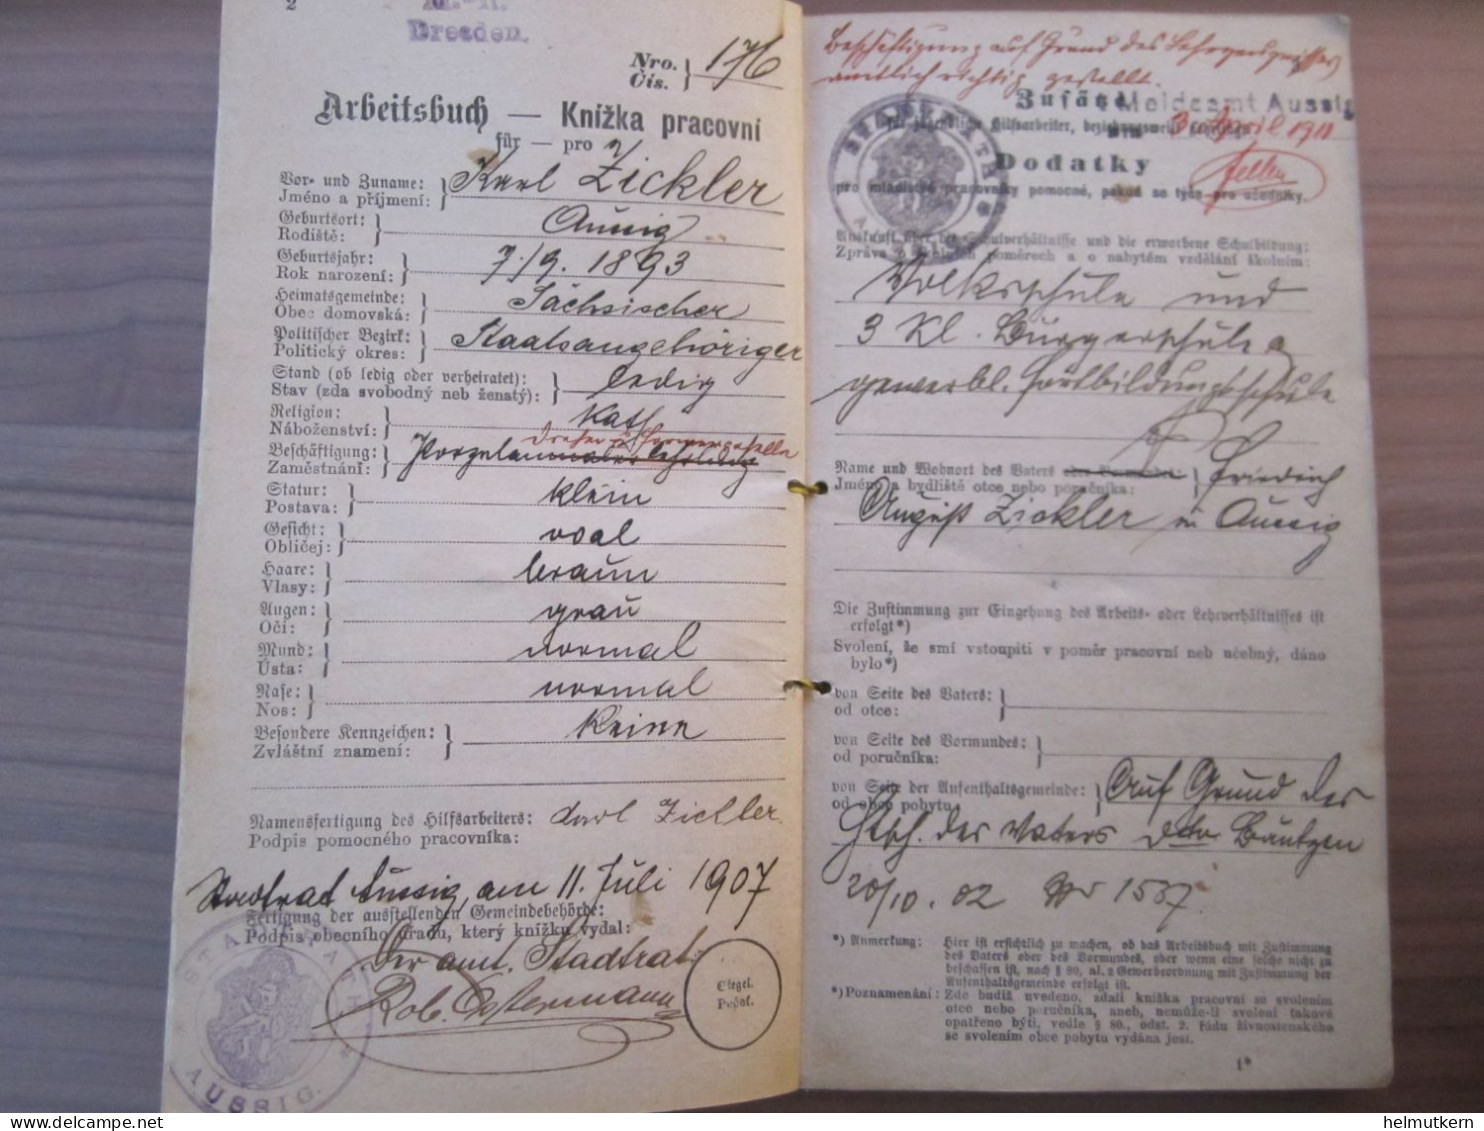 2
Dresden.
Nro.
Čís. } 176
Arbeitsbuch — Knížka pracovní
für — pro
Vor- und Zuname:
Jméno a příjmení: } Karl Zickler
Geburtsort:
Rodiště: } Aussig
Geburtsjahr:
Rok narození: } 7./9. 1893
Heimatsgemeinde:
Obec domovská: } Sächsischer
Politischer Bezirk:
Politický okres: } Staatsangehöriger
Stand (ob ledig oder verheiratet):
Stav (zda svobodný neb ženatý): } ledig
Religion:
Náboženství: } kath
Dreher u. Formergeselle
Beschäftigung:
Zaměstnání: } Porzelanmaler lehrling
Statur:
Postava: } klein
Gesicht:
Obličej: } oval
Haare:
Vlasy: } braun
Augen:
Oči: } grau
Mund:
Ústa: } normal
Nase:
Nos: } normal
Besondere Kennzeichen:
Zvláštní znamení: } Keine
Namensfertigung des Hilfsarbeiters:
Podpis pomocného pracovníka: Karl Zickler.
Stadtrat Aussig, am 11. Juli 1907
Fertigung der ausstellenden Gemeindebehörde:
Podpis obecního úřadu, který knížku vydal:
Der amt. Stadtrat:
Rob. Ostermann
Siegel.
Pečeť.
STADTRATH
AUSSIG.
Beschäftigung auf Grund des Lehrzeugnisses
amtlich richtig gestellt.
Zusätze
Meldeamt Aussig
Hilfsarbeiter, beziehungsweise
3. April 1911
Dodatky
pro mladistvé pracovníky pomocné, pokud se týče pro učedníky.
STADTRATH
Auskunft über die Schulverhältnisse und die erworbene Schulbildung:
Zpráva o školních poměrech a o nabytém vzdělání školním:
Volksschule und
3 Kl. Bürgerschule
gewerbl. Fortbildungsschule
Name und Wohnort des Vaters oder Vormundes:
Jméno a bydliště otce nebo poručníka: } Friedrich
August Zickler in Aussig
Die Zustimmung zur Eingehung des Arbeits- oder Lehrverhältnisses ist
erfolgt*)
Svolení, že smí vstoupiti v poměr pracovní neb učebný, dáno
bylo*)
von Seite des Vaters:
od otce: }
von Seite des Vormundes:
od poručníka: }
von Seite der Aufenthaltsgemeinde:
od obce pobytu: } Auf Grund des
Htsch. des Vaters dto Bautzen
20/10. 02 Nr 1537
*) Anmerkung: Hier ist ersichtlich zu machen, ob das Arbeitsbuch mit Zustimmung
des Vaters oder des Vormundes, aber wenn eine solche nicht zu
beschaffen ist, nach § 80, al. 2 Gewerbeordnung mit Zustimmung der
Aufenthaltsgemeinde erfolgt ist.
*) Poznamenání: Zde budiž uvedeno, zdali knížka pracovní se svolením
otce nebo poručníka, aneb, nemůže-li svolení takové
opatřeno býti, vedle § 80., odst. 2. řádu živnostenského
se svolením obce pobytu vydána jest.
1*
helmutkern